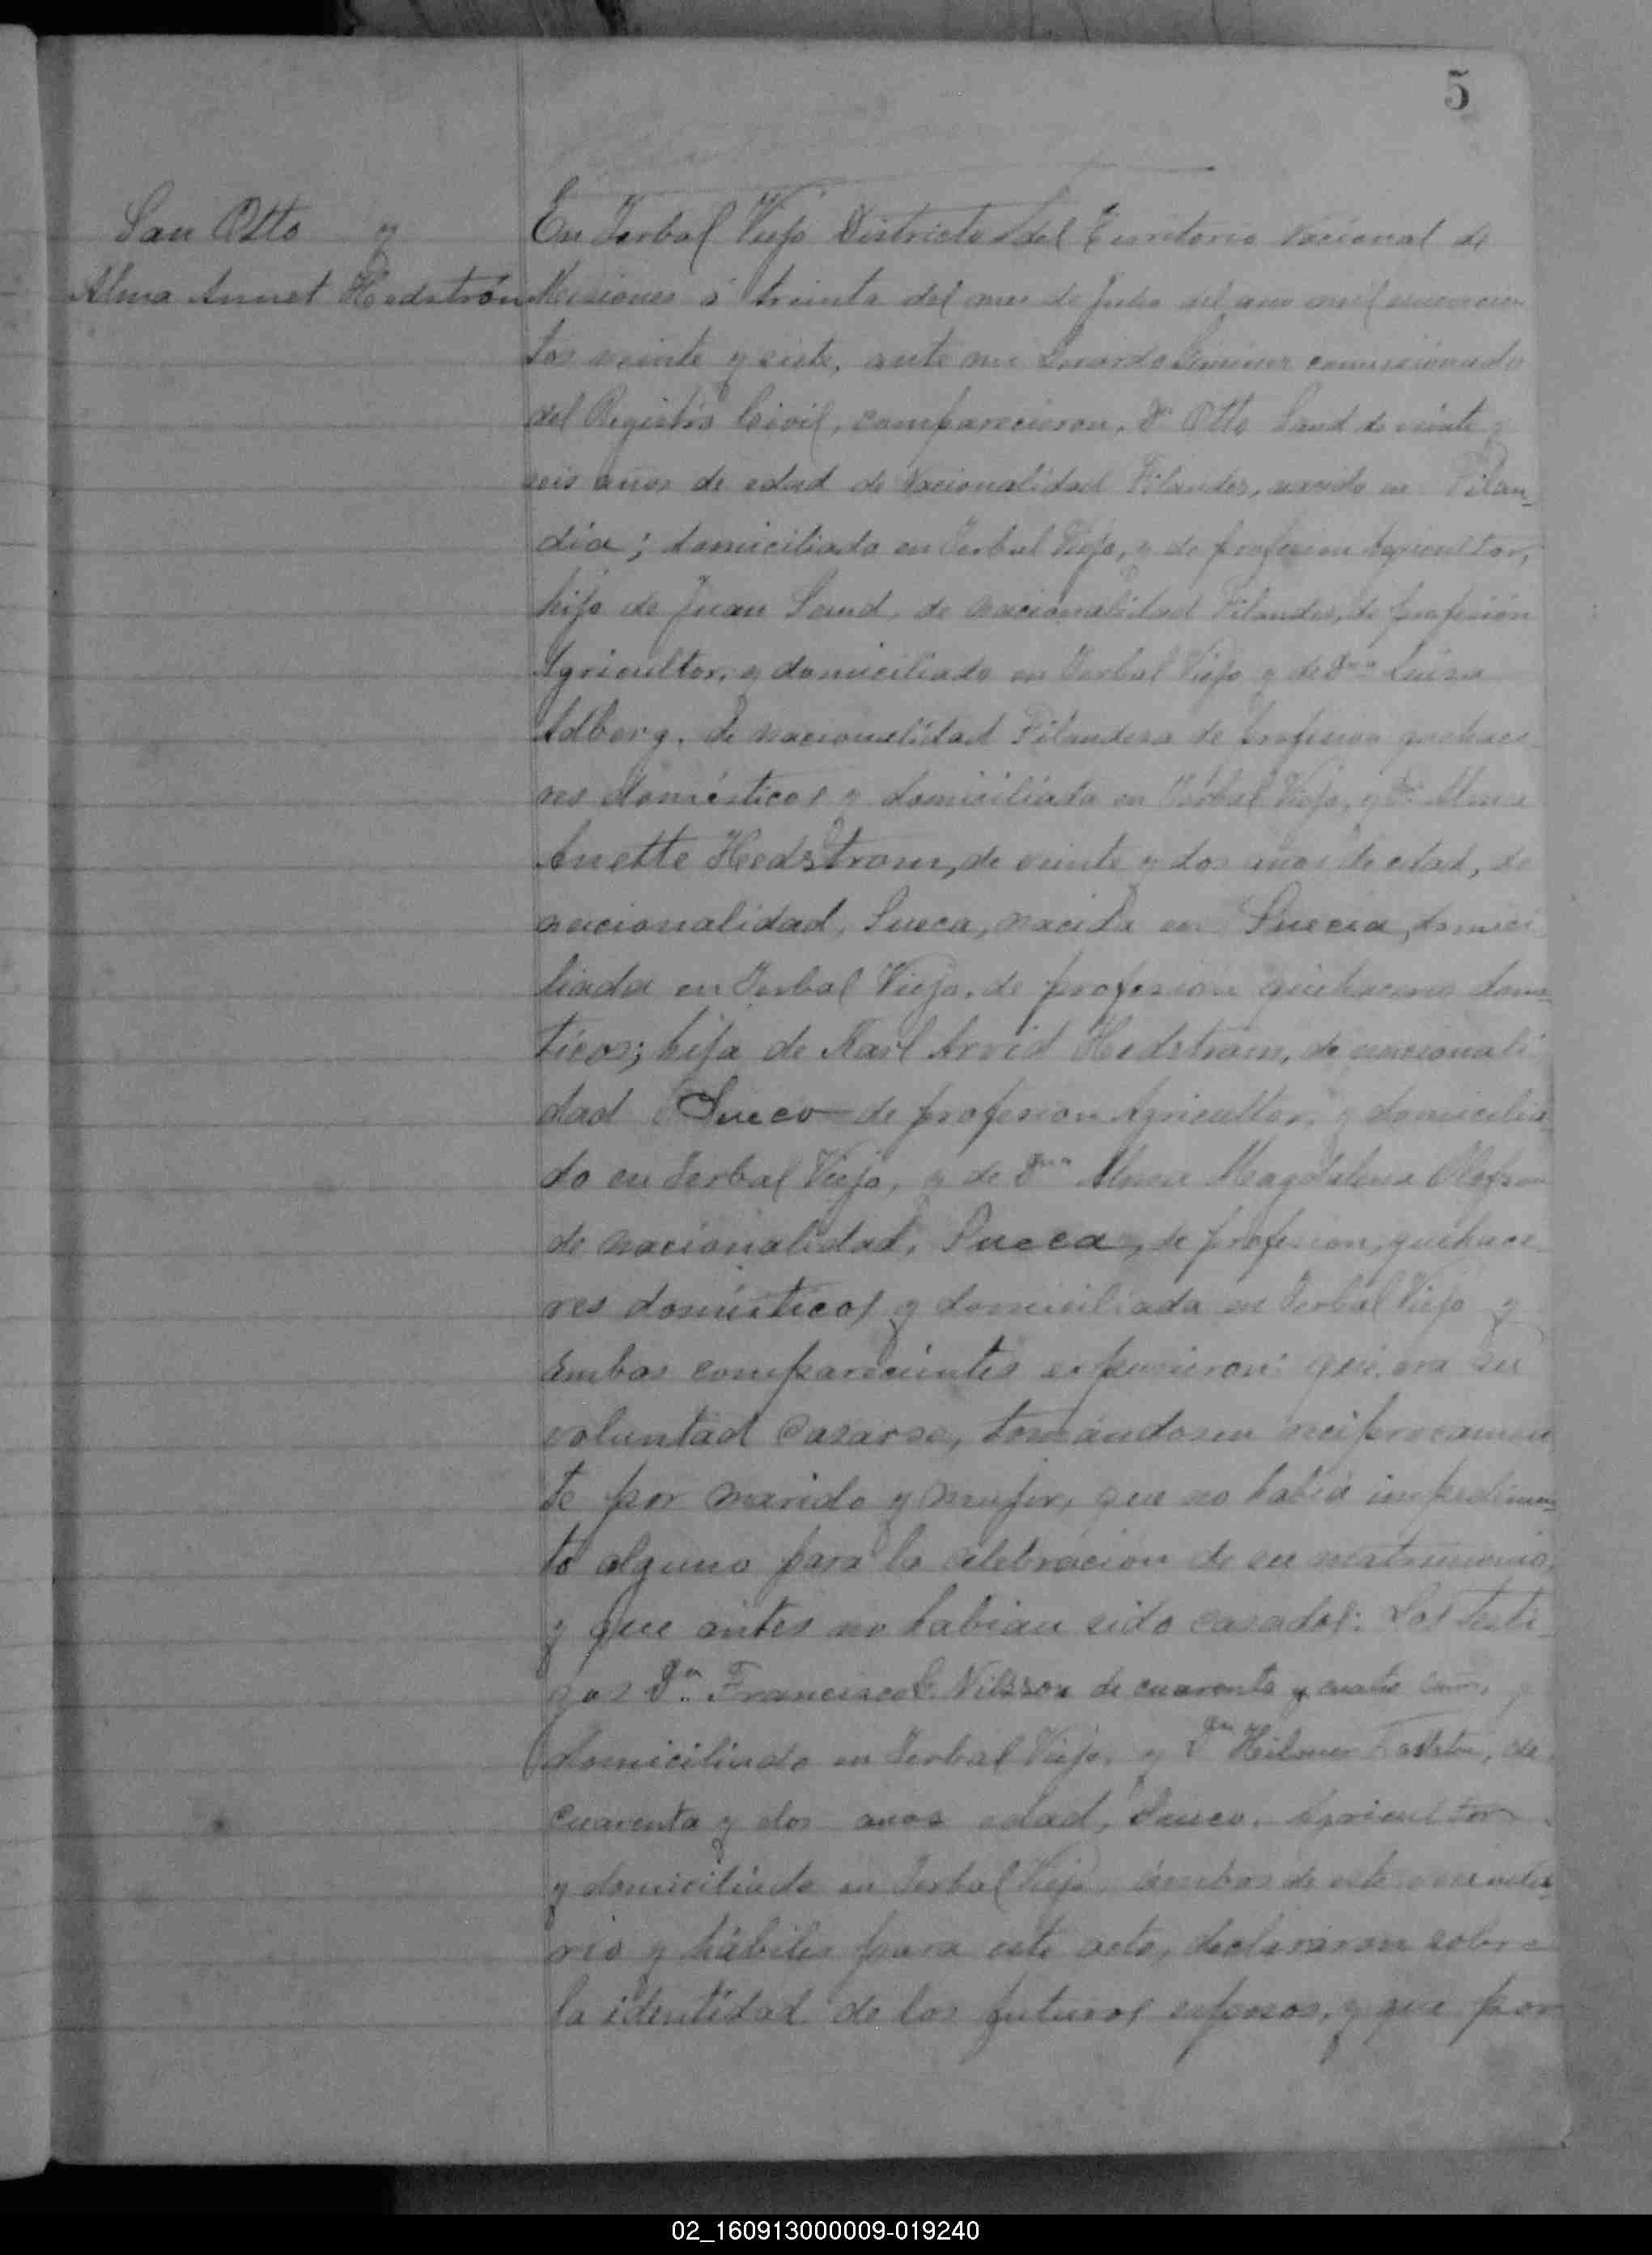 5
San Otto y
Alma Annet Hedström
En Yerbal Viejo Districto del Territorio Nacional de
Misiones á treinta del mes de Julio del año mil novecien
tos veinte y siete, ante mi comisionado
del Registro Civil, comparecieron, Dn Otto Sand de veinte y
seis años de edad de nacionalidad Filandes, nacido en Filan-
dia; domiciliado en Yerbal Viejo, y de profesion Agricultor,
hijo de Juan Sand, de nacionalidad Filandes, de profesión
Agricultor, y domiciliado en Yerbal Viejo y de Dna Luisa
Adberg, de nacionalidad Filandesa de profesion quehace
res domésticos y domiciliada en Yerbal Viejo, y Da Alma
Anette Hedstrom, de veinte y dos años de edad, de
nacionalidad, Sueca, nacida en Suecia, domici
liada en Yerbal Viejo, de profesion quehaceres domes
ticos; hija de Karl Arvid Hedstrom, de nacionali
dad Sueco de profesion Agricultor, y domicilia
do en Yerbal Viejo, y de Dna Alma Magdalena Olofson
de nacionalidad, Sueca, de profesion, quehace
res domésticos y domiciliada en Yerbal Viejo y
ambos comparecientes expusieron: que era su
voluntad casarse, tomándosen reciprocamen
te por marido y mujer, que no había impedimen-
to alguno para la celebración de su matrimonio,
y que antes no habian sido casados: Los testi
gos Dn. Francisco C. Nilsson de cuarenta y cuatro años,
domiciliado en Yerbal Viejo, y Dn Hilmer, de
cuarenta y dos años edad, Sueco, Agricultor
y domiciliado en Yerbal Viejo, ámbos de este vecinda
rio y hábiles para este acto, declararon sobre
la identidad de los futuros esposos, y que por
02_160913000009-019240